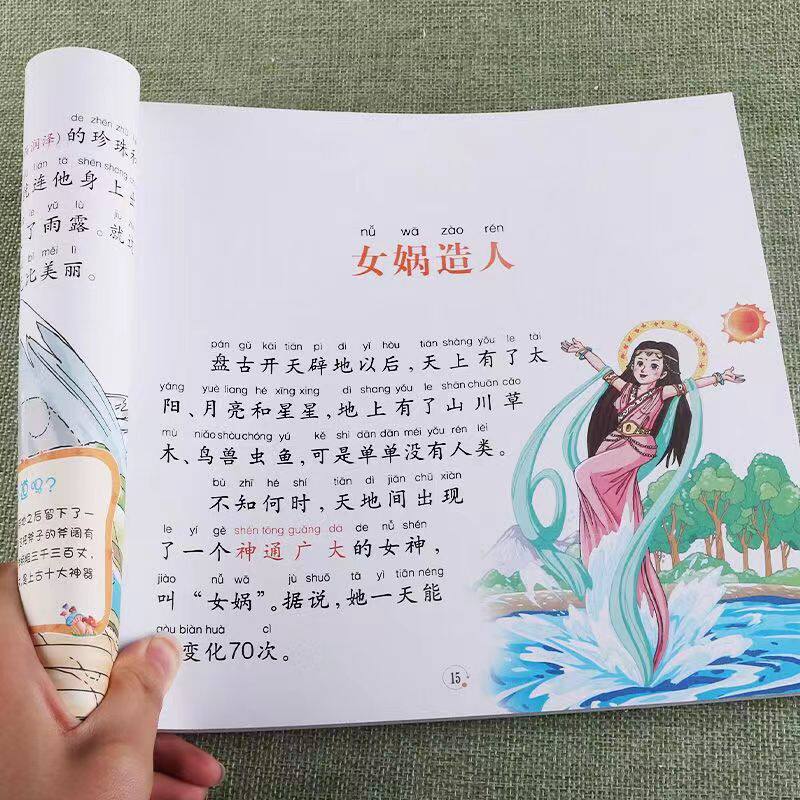 de zhēn zhū
润泽)的珍珠和
lián tā shēn shang
连他身上
le yǔ lù jiù
了雨露。就
bǐ měi lì
比美丽。
道吗?
之后留下了一
斧子的斧阔有
三千三百丈,
是上古十大神器
nǚ wā zào rén
女娲造人
pán gǔ kāi tiān pì dì yǐ hòu tiān shàng yǒu le tài
盘古开天辟地以后,天上有了太
yáng yuè liang hé xīng xing dì shang yǒu le shān chuān cǎo
阳、月亮和星星,地上有了山川草
mù niǎo shòu chóng yú kě shì dān dān méi yǒu rén lèi
木、鸟兽虫鱼,可是单单没有人类。
bù zhī hé shí tiān dì jiān chū xiàn
不知何时,天地间出现
le yí gè shén tōng guǎng dà de nǚ shén
了一个神通广大的女神,
jiào nǚ wā jù shuō tā yì tiān néng
叫“女娲”。据说,她一天能
gòu biàn huà cì
变化70次。
15